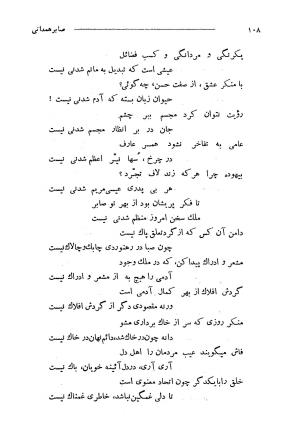 ۱۰۸ صابر همدانی
یکرنگی و مردانگی و کسب فضائل
عیشی است که تبدیل به ماتم شدنی نیست
با منکر عشق، از صفت حسن، چه گوئی؟
حیوان زبان بسته که آدم شدنی نیست!
رؤیت نتوان کرد مجسم ببر چشم
جان در بر انظار مجسم شدنی نیست
عامی به تفاخر نشود همسر عارف
در چرخ، سها نیر اعظم شدنی نیست
بیهوده چرا هر که زند لاف تجرّد؟
هر بی پدری عیسی مریم شدنی نیست
تا فکر پریشان بود از بهر تو صابر
ملك سخن امروز منظم شدنی نیست
دامن آن کس که از گرد تعلق پاك نیست
چون صبا در رهنوردی چابك و چالاك نیست
مشعر و ادراك پیدا کن، که در ملك وجود
آدمی را هیچ به از مشعر و ادراك نیست
گردش افلاك از بهر کمال آدمی است
ورنه مقصودی دگر از گردش افلاك نیست
منکر روزی که سر از خاك برداری مشو
دانه چون در خاك شد، دائم نهان در خاك نیست
فاش میگویند عیب مردمان را اهل دل
آری آری در دل آئینه خوبان، باك نیست
خلق را با یکدگر چون اتحاد معنوی است
تا دلی غمگین نباشد، خاطری غمناك نیست